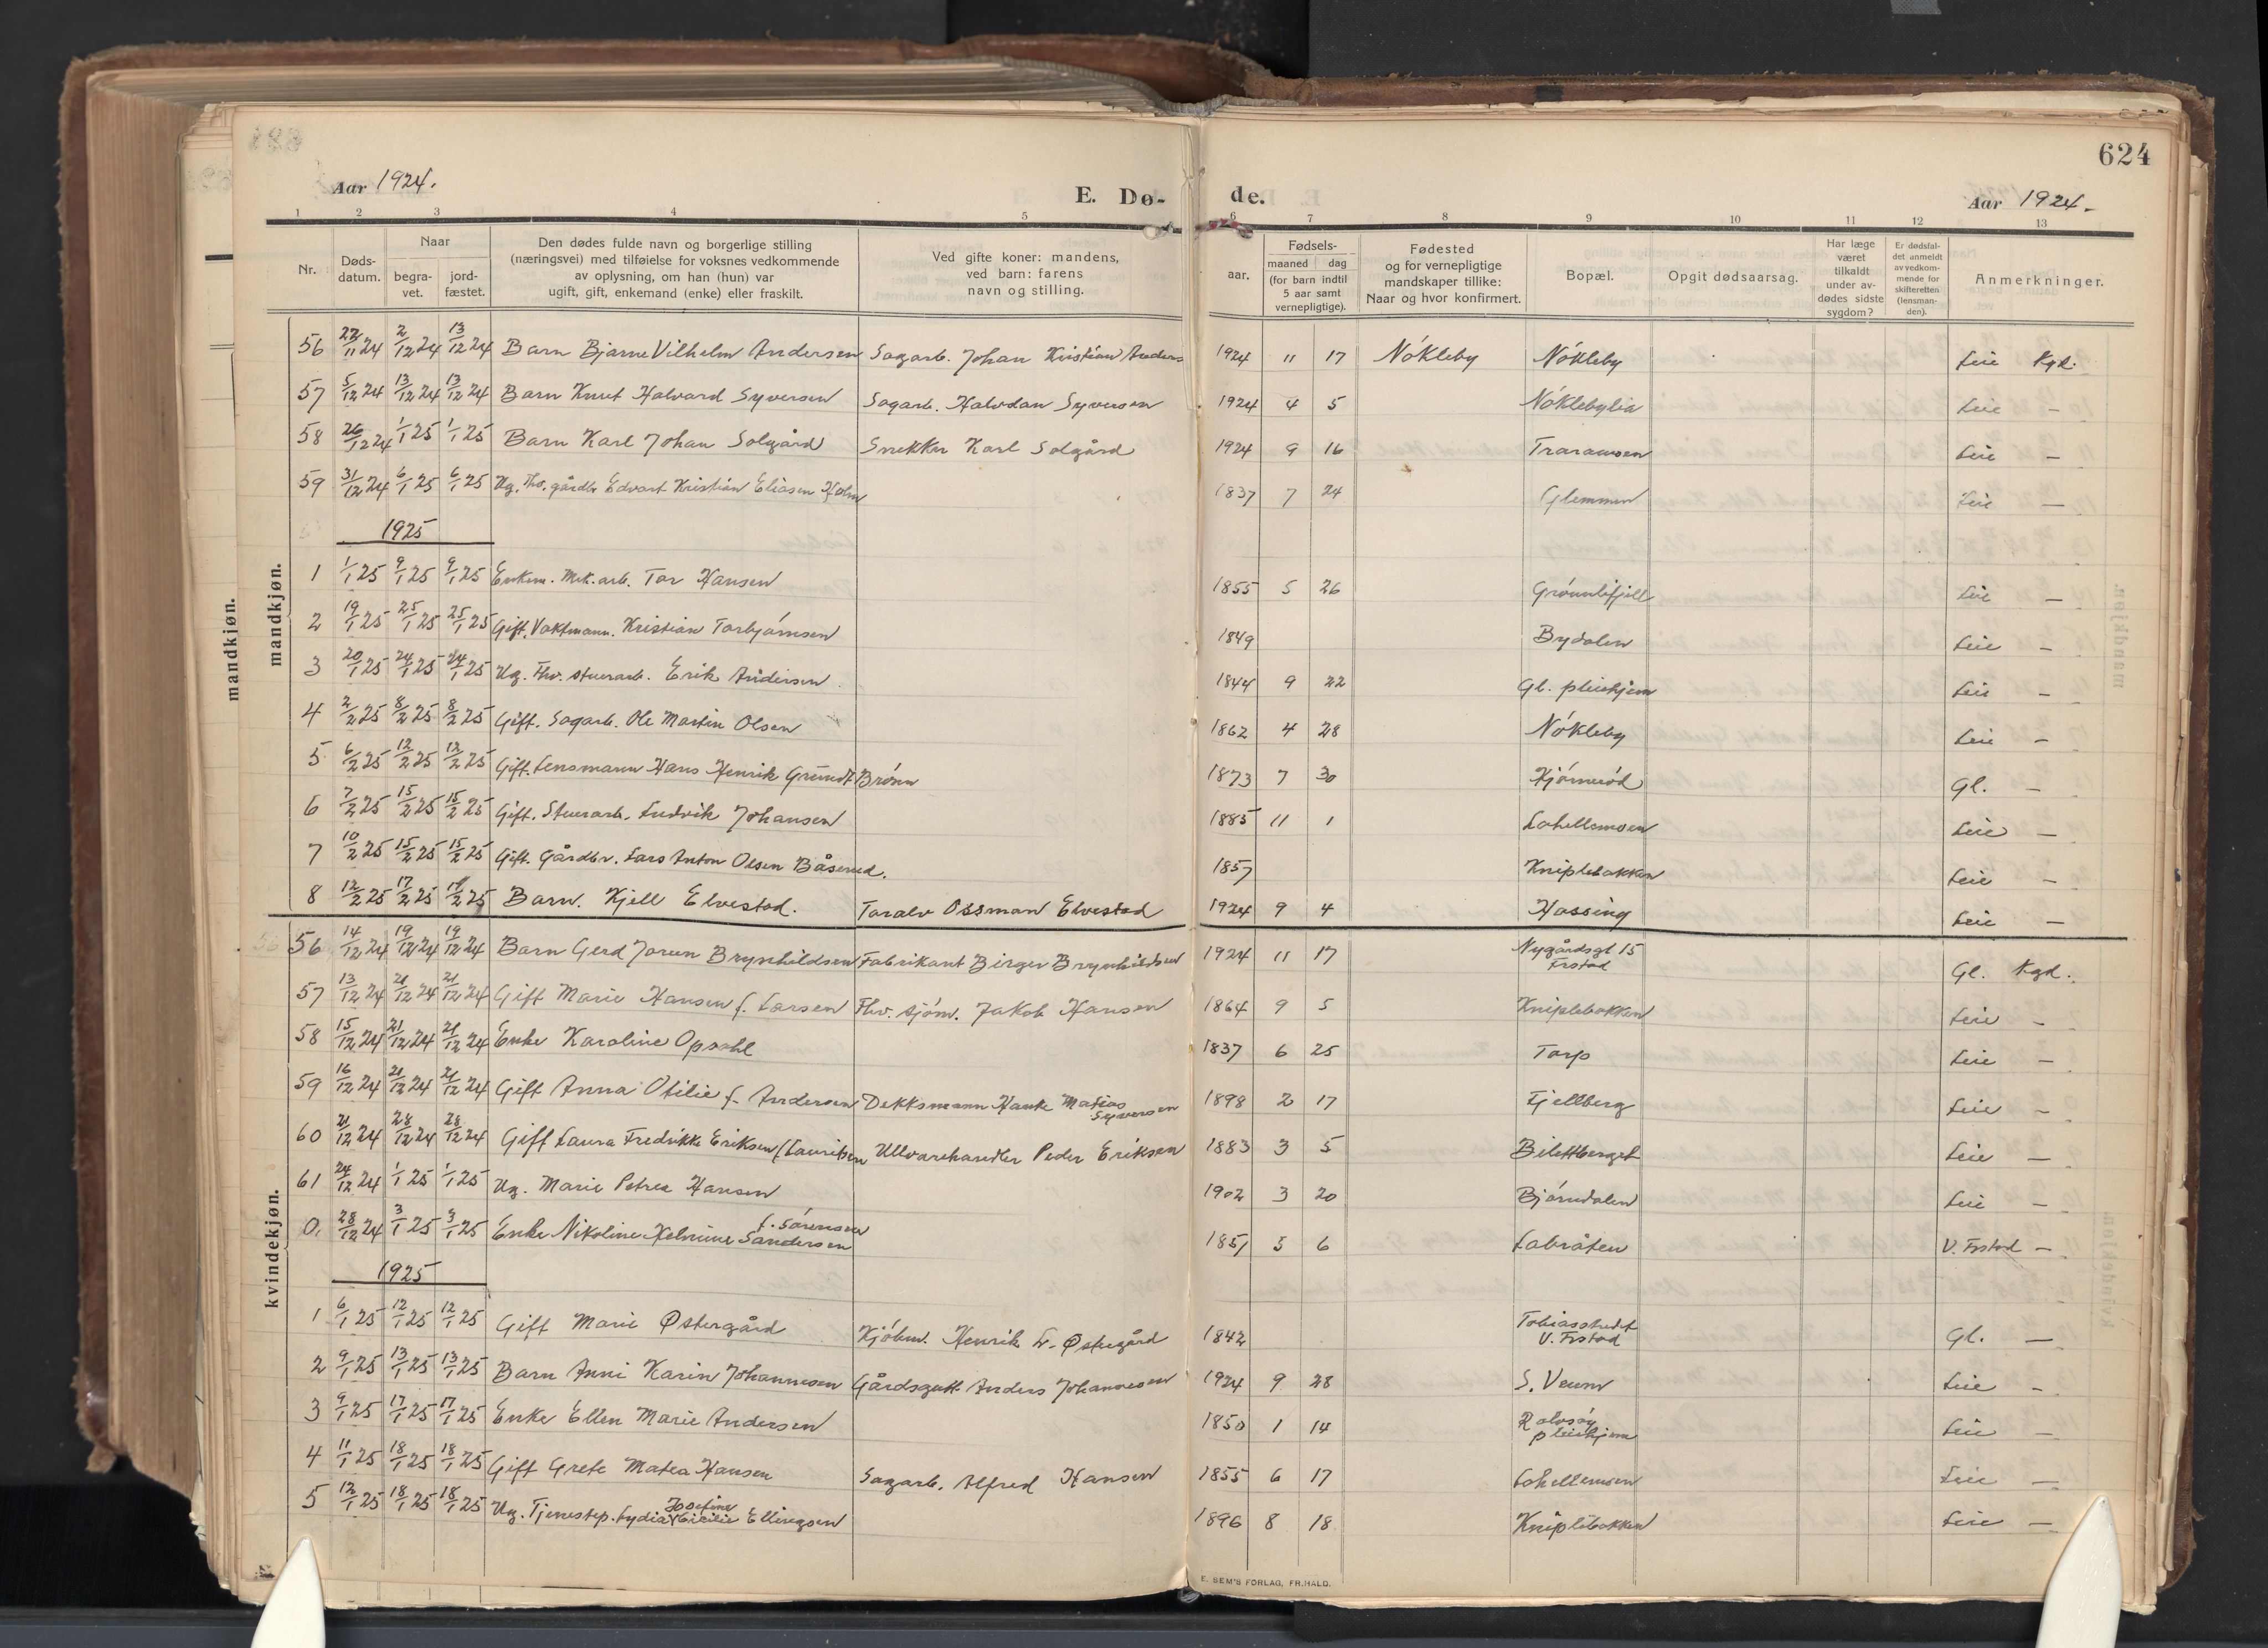 624
Aar 1924.
E. Dø-
de.
Aar 1924.
1 2 3 4 5 6 7 8 9 10 11 12 13
Nr.
Døds-
datum.
Naar
begra-
vet.
jord-
fæstet.
Den dødes fulde navn og borgerlige stilling
(næringsvei) med tilføielse for voksnes vedkommende
av oplysning, om han (hun) var
ugift, gift, enkemand (enke) eller fraskilt.
Ved gifte koner: mandens,
ved barn: farens
navn og stilling.
Fødsels-
aar.
maaned dag
(for barn indtil
5 aar samt
vernepligtige).
Fødested
og for vernepligtige
mandskaper tillike:
Naar og hvor konfirmert.
Bopæl.
Opgit dødsaarsag.
Har læge
været
tilkaldt
under av-
dødes sidste
sygdom?
Er dødsfal-
det anmeldt
av vedkom-
mende for
skifteretten
(lensman-
den).
Anmerkninger.
mandkjøn.
mandkjøn.
56 22/11 24 2/12 24 13/12 24 Barn Bjarne Vilhelm Andersen Sagarb. Johan Kristian Anders 1924 11 17 Nókleby Nókleby Leie Kgd.
57 5/12 24 13/12 24 13/12 24 Barn Knut Halvard Syversen Sagarb. Halvdan Syversen 1924 4 5 Nóklebylia Leie —
58 26/12 24 1/1 25 1/1 25 Barn Karl Johan Solgård Snekker Karl Solgård 1924 9 16 Traraumsen Leie —
59 31/12 24 6/1 25 6/1 25 Ug. Fhv. gårdbr Edvart Kristian Eliasen Holm 1837 7 24 Glemmen Leie —
1925
1 1/1 25 9/1 25 9/1 25 Enkem. Mek. arb. Tor Hansen 1855 5 26 Grónnlifjell Leie —
2 19/1 25 25/1 25 25/1 25 Gift. Vaktmann. Kristian Torbjórnsen 1849 Bydalen Leie —
3 20/1 25 24/1 25 24/1 25 Ug. Fhv. stuerarb. Erik Andersen 1844 9 22 Gl. pleiehjem Leie —
4 2/2 25 8/2 25 8/2 25 Gift. Sagarb. Ole Martin Olsen 1862 4 28 Nókleby Leie —
5 6/2 25 12/2 25 12/2 25 Gift. Lensmann Hans Henrik Grundt Brónn 1873 7 30 Kjórneród Gl. —
6 7/2 25 15/2 25 15/2 25 Gift. Stuerarb. Ludvik Johansen 1885 11 1 Lahellemoen Leie —
7 10/2 25 15/2 25 15/2 25 Gift. Gårdbr. Lars Anton Olsen Båserud. 1857 Kniplebakken Leie —
8 12/2 25 17/2 25 17/2 25 Barn. Kjell Elvestad. Toralv Ossman Elvestad 1924 9 4 Hassing Leie —
kvindekjøn.
56 14/12 24 19/12 24 19/12 24 Barn Gerd Jorun Brynhildsen Fabrikant Birger Brynhildsen 1924 11 17 Nygårdsgt 15
Frstad Gl. Kgd.
57 13/12 24 21/12 24 21/12 24 Gift Marie Hansen f. Larsen Fhv. sjóm. Jakob Hansen 1864 9 5 Kniplebakken Leie —
58 15/12 24 21/12 24 21/12 24 Enke Karoline Opsahl 1837 6 25 Torp Leie —
59 16/12 24 21/12 24 21/12 24 Gift Anna Otilie f. Andersen Dekksmann Hauke Matias
Syversen 1898 2 17 Fjellberg Leie —
60 21/12 24 28/12 24 28/12 24 Gift Laura Fredrikke Eriksen f Lauritsen Ullvarehandler Peder Eriksen 1883 3 5 Bilettberget Leie —
61 24/12 24 1/1 25 1/1 25 Ug. Marie Petrea Hansen 1902 3 20 Bjórndalen Leie —
0. 28/12 24 3/1 25 3/1 25 Enke Nikoline Helmine Sandersen
f. Sórensen 1851 5 6 Labråten V. Frstad —
1925
1 6/1 25 12/1 25 12/1 25 Gift Marie Østergård Kjóbm. Henrik L. Østergård 1842 Tobiasstredet
V. Frstad Gl. —
2 9/1 25 13/1 25 13/1 25 Barn Anni Karin Johannesen Gårdsgutt Anders Johannesen 1924 9 28 S. Veum Leie —
3 9/1 25 17/1 25 17/1 25 Enke Ellen Marie Andersen 1850 1 14 Rolvsóy
pleiehjem Leie —
4 11/1 25 18/1 25 18/1 25 Gift Grete Matea Hansen Sagarb. Alfred Hansen 1855 6 17 Lahellemoen Leie —
5 12/1 25 18/1 25 18/1 25 Ug. Tjenestep. Lydia Josefine Cicilie Ellingsen 1896 8 18 Kniplebakken Leie —
E. SEM'S FORLAG, FR.HALD.